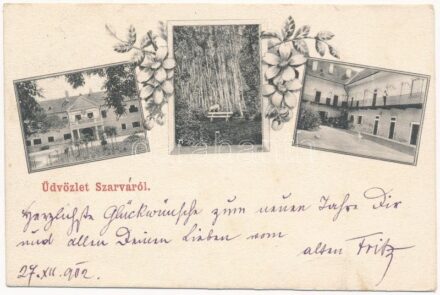 Üdvözlet Szarváról.
Herzlichste Glückwünsche zum neuen Jahre Dir
und allen Deinen Lieben vom
alten Fritz
27.XII.902.